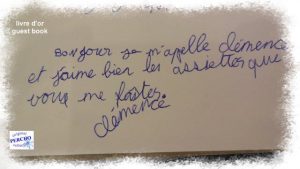 livre d'or
guest book
Bonjour je m'apelle clémence
et j'aime bien les assiettes que
vous me faites.
clémence
PERCHO